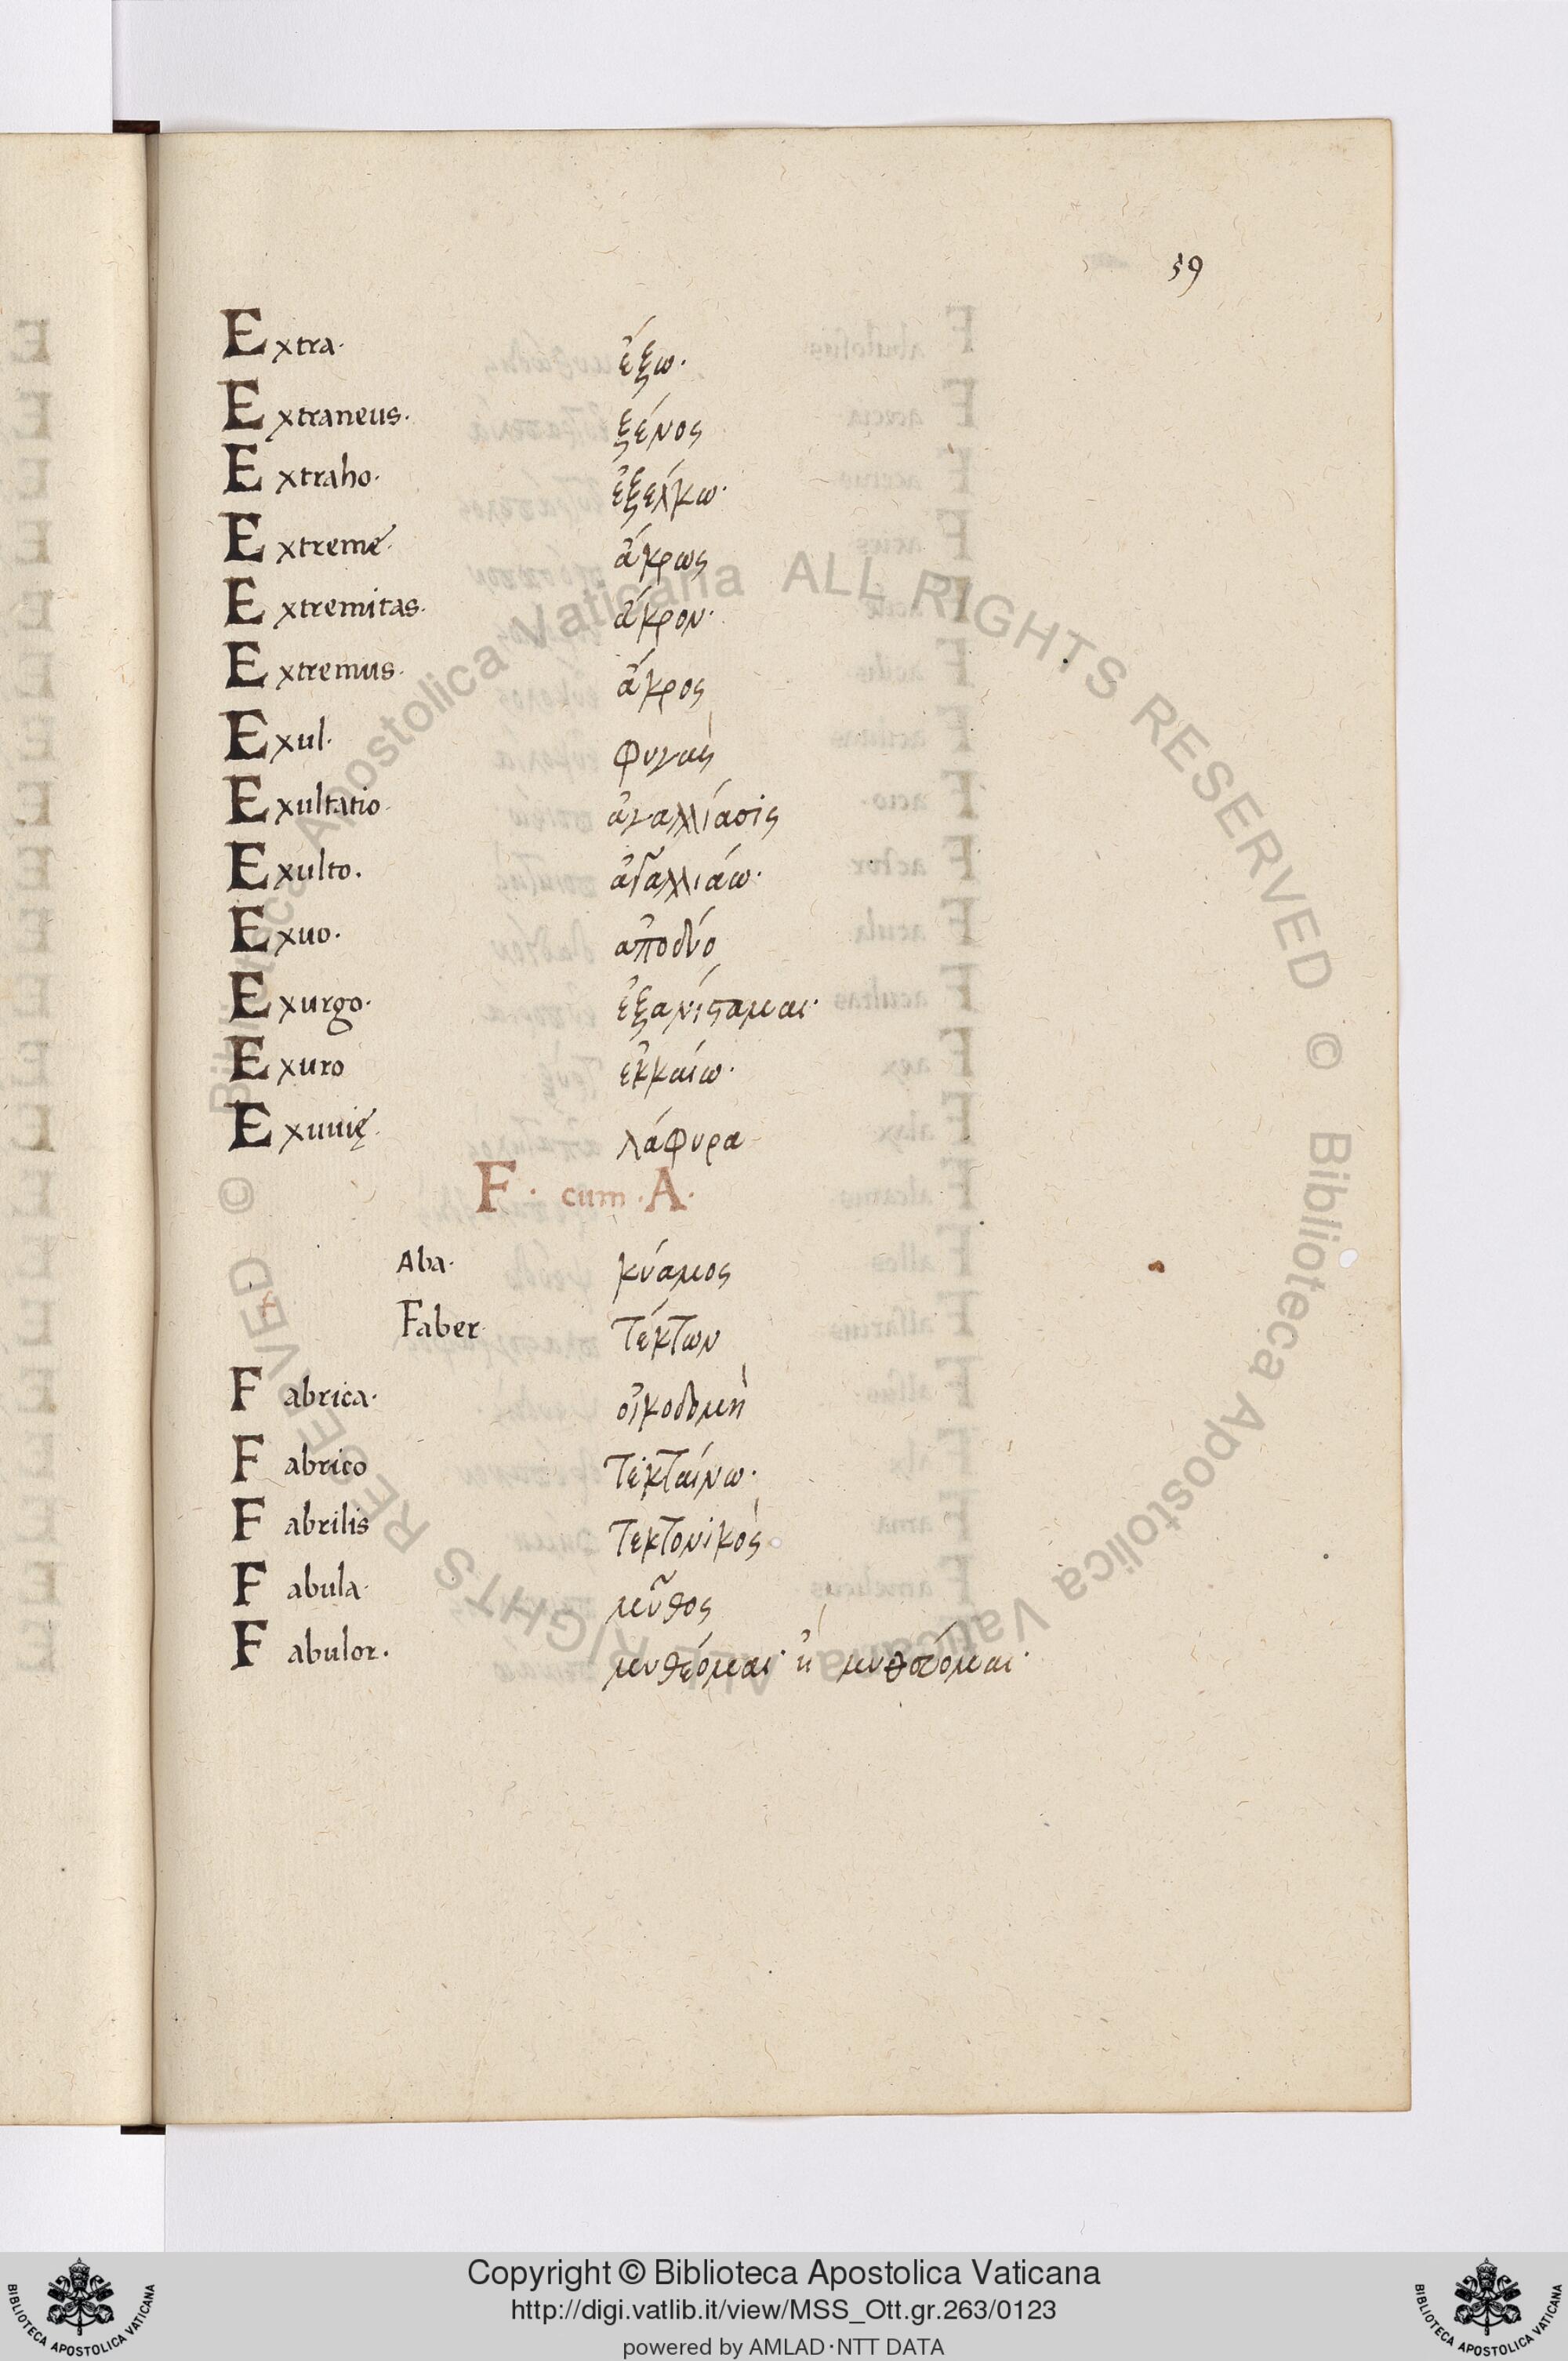 59
Extra· ἔξω·
Extraneus· ξένος
Extraho· ἐξελκω·
Extremé· ἄκρως
Extremitas· ἄκρον·
Extremus· ἄκρος
Exul· φυγὰς
Exultatio· ἀγαλλίασις
Exulto· ἀγαλλιάω·
Exuo· ἀποδύο
Exurgo· ἐξανίσταμαι·
Exuro ἐκκαίω·
Exuuię· λάφυρα
F· cum ·A·
Aba· κύαμος
Faber τέκτων
Fabrica· οἰκοδομὴ
Fabrico τεκταίνω·
Fabrilis τεκτονικὸς
Fabula· μῦθος
Fabulor· μυθέομαι· ἢ μυθούομαι·
Biblioteca Apostolica Vaticana ALL RIGHTS RESERVED © Biblioteca Apostolica Vaticana ALL RIGHTS RESERVED ©
Copyright © Biblioteca Apostolica Vaticana
http://digi.vatlib.it/view/MSS_Ott.gr.263/0123
powered by AMLAD·NTT DATA
BIBLIOTECA APOSTOLICA VATICANA
BIBLIOTECA APOSTOLICA VATICANA